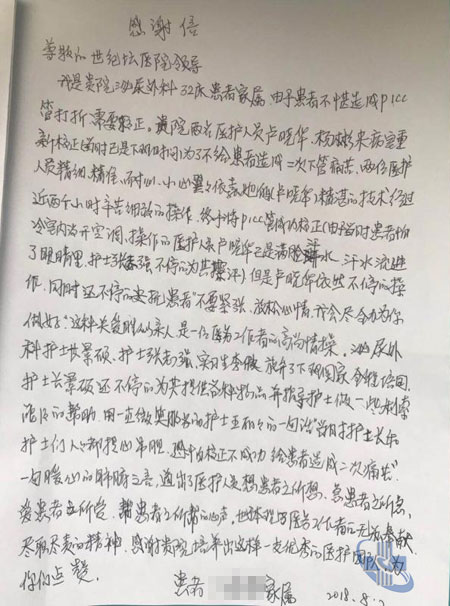 感谢信
尊敬的世纪坛医院领导
我是贵院泌尿外科32床患者家属,由于患者不慎造成picc
管打折需要矫正。贵院两名医护人员卢晓华、杨 来病室重
新校正当时已是下班时间为了不给患者造成二次下管痛苦,两位医护
人员精细、精准、耐心、小心翼 依靠她们(卢晓华)精湛的技术经过
近两个小时辛苦细致的操作,终于将picc管成功校正(由于当时患者怕
冷室内没开空调,操作的医护人员卢晓华已是满脸汗水,汗水流进
了眼睛里,护士张志强不停的为其擦汗)但是卢晓华依然不停的操
作,同时还不停的安抚患者"不要紧张,放松心情,我会尽全力为你
做好",这种关爱胜似亲人是一位医务工作者的高尚情操。泌尿外
科护士长景硕、护士张志强、实习生李 放弃了下班回家,全程陪同,
护士长景硕还不停的为其提供各种物品并指导护士做一些
的帮助,用一直微笑服务的护士王 的一句话"当时护士长和
护士们人人都提心吊胆,恐怕校正不成功给患者造成二次痛苦"
一句暖心的肺腑之言,道出了医护人员想患者之所想,急患者之所急,
爱患者之所爱,帮患者之所需的心声,也体现了医务工作者的无私奉献、
尽职尽责的精神,感谢贵院培养出这样一支优秀的医护团队,为
你们点赞。
患者 家属 2018.8.7